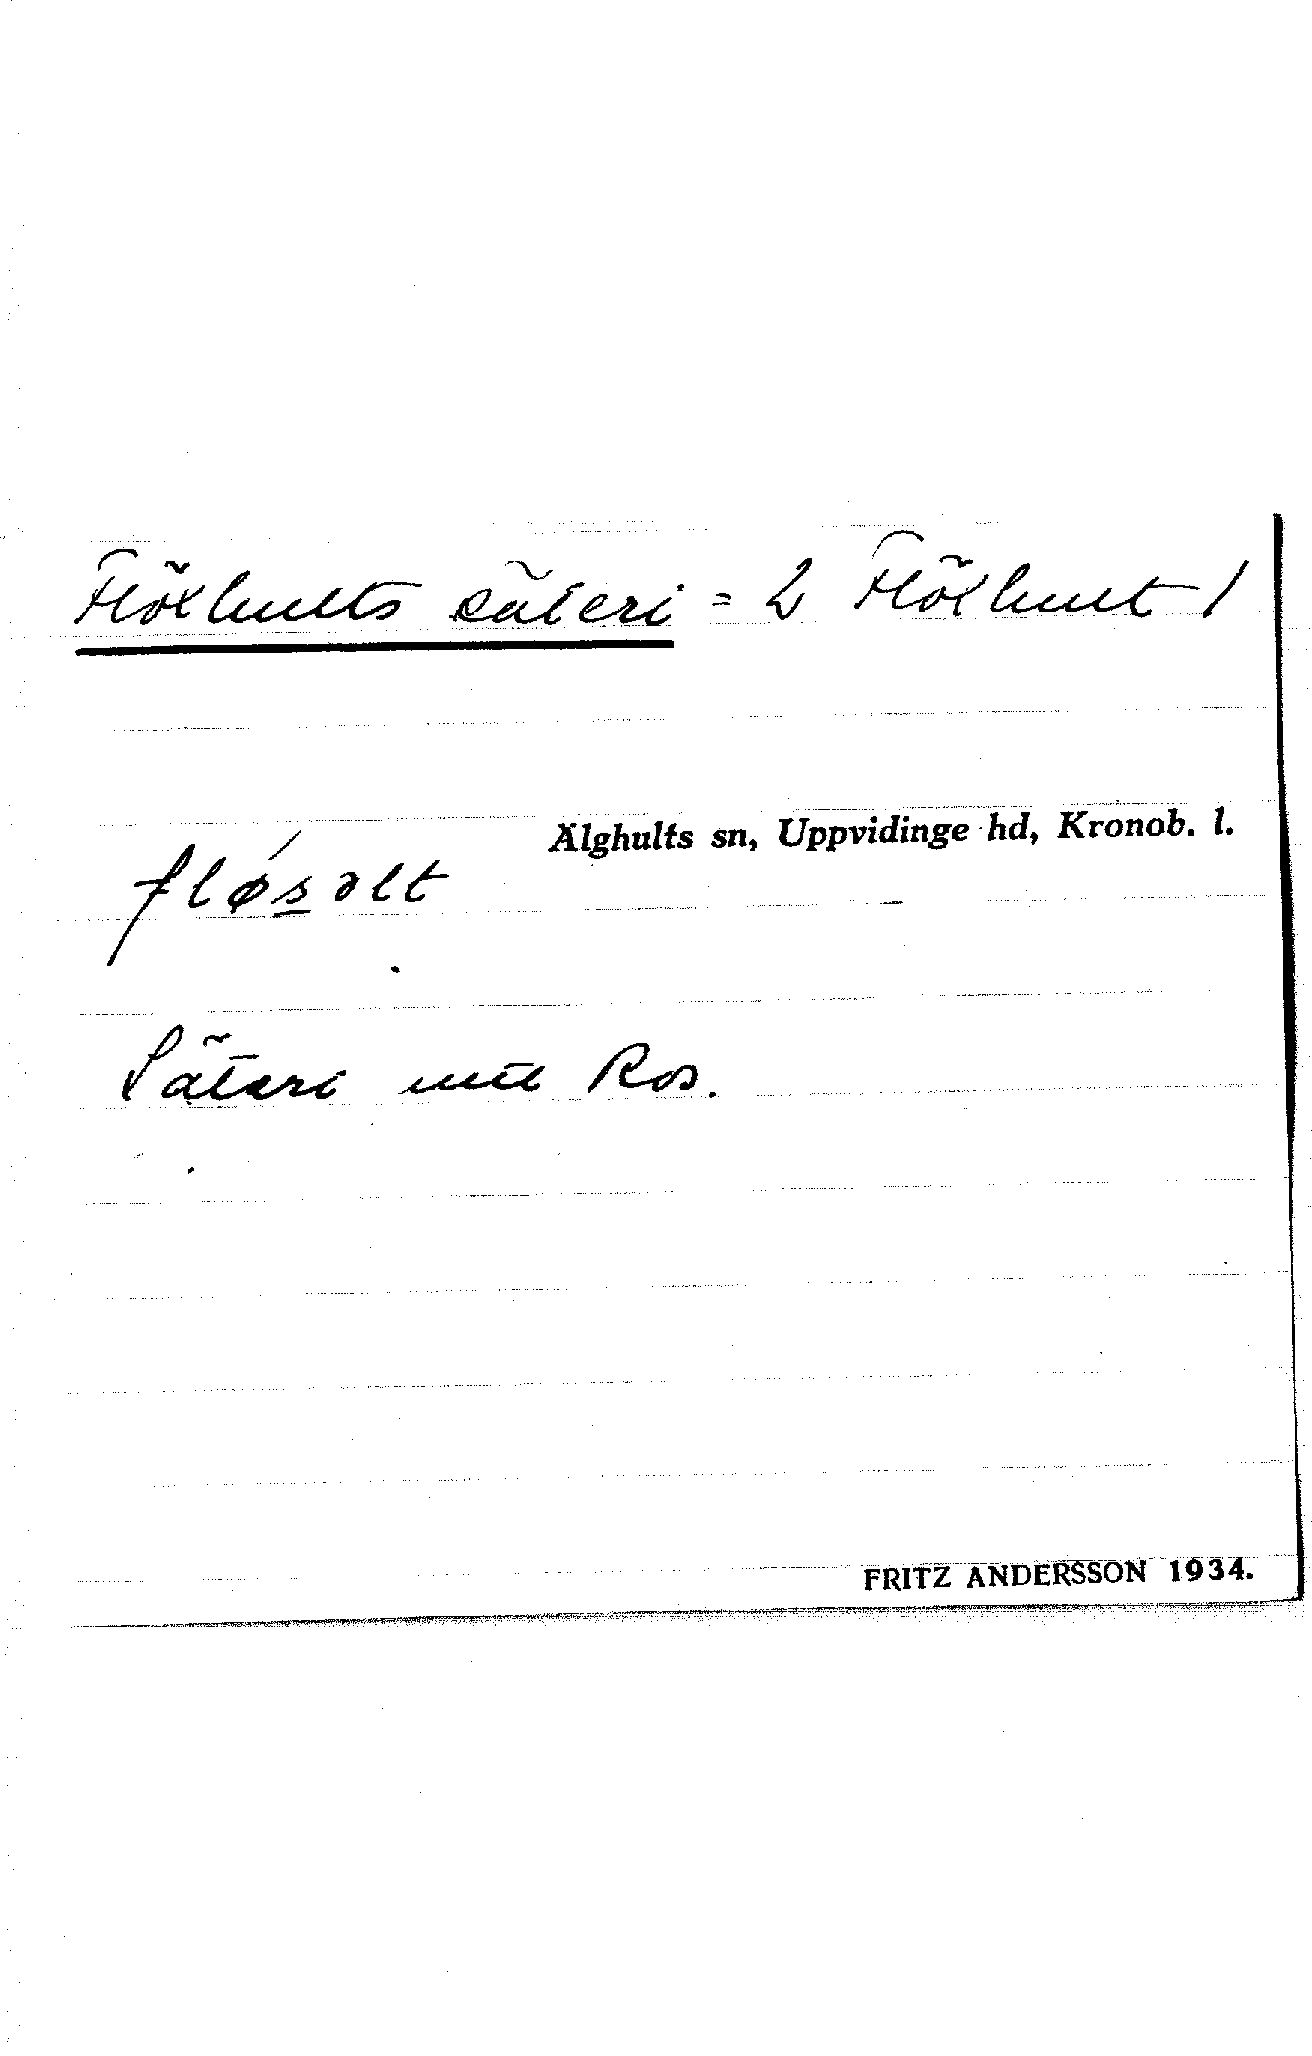 Flöxhults säteri = 2 Flöxhult 1
Älghults sn, Uppvidinge hd, Kronob. l.
fløsəlt
Säteri mtl Ros.
FRITZ ANDERSSON 1934.